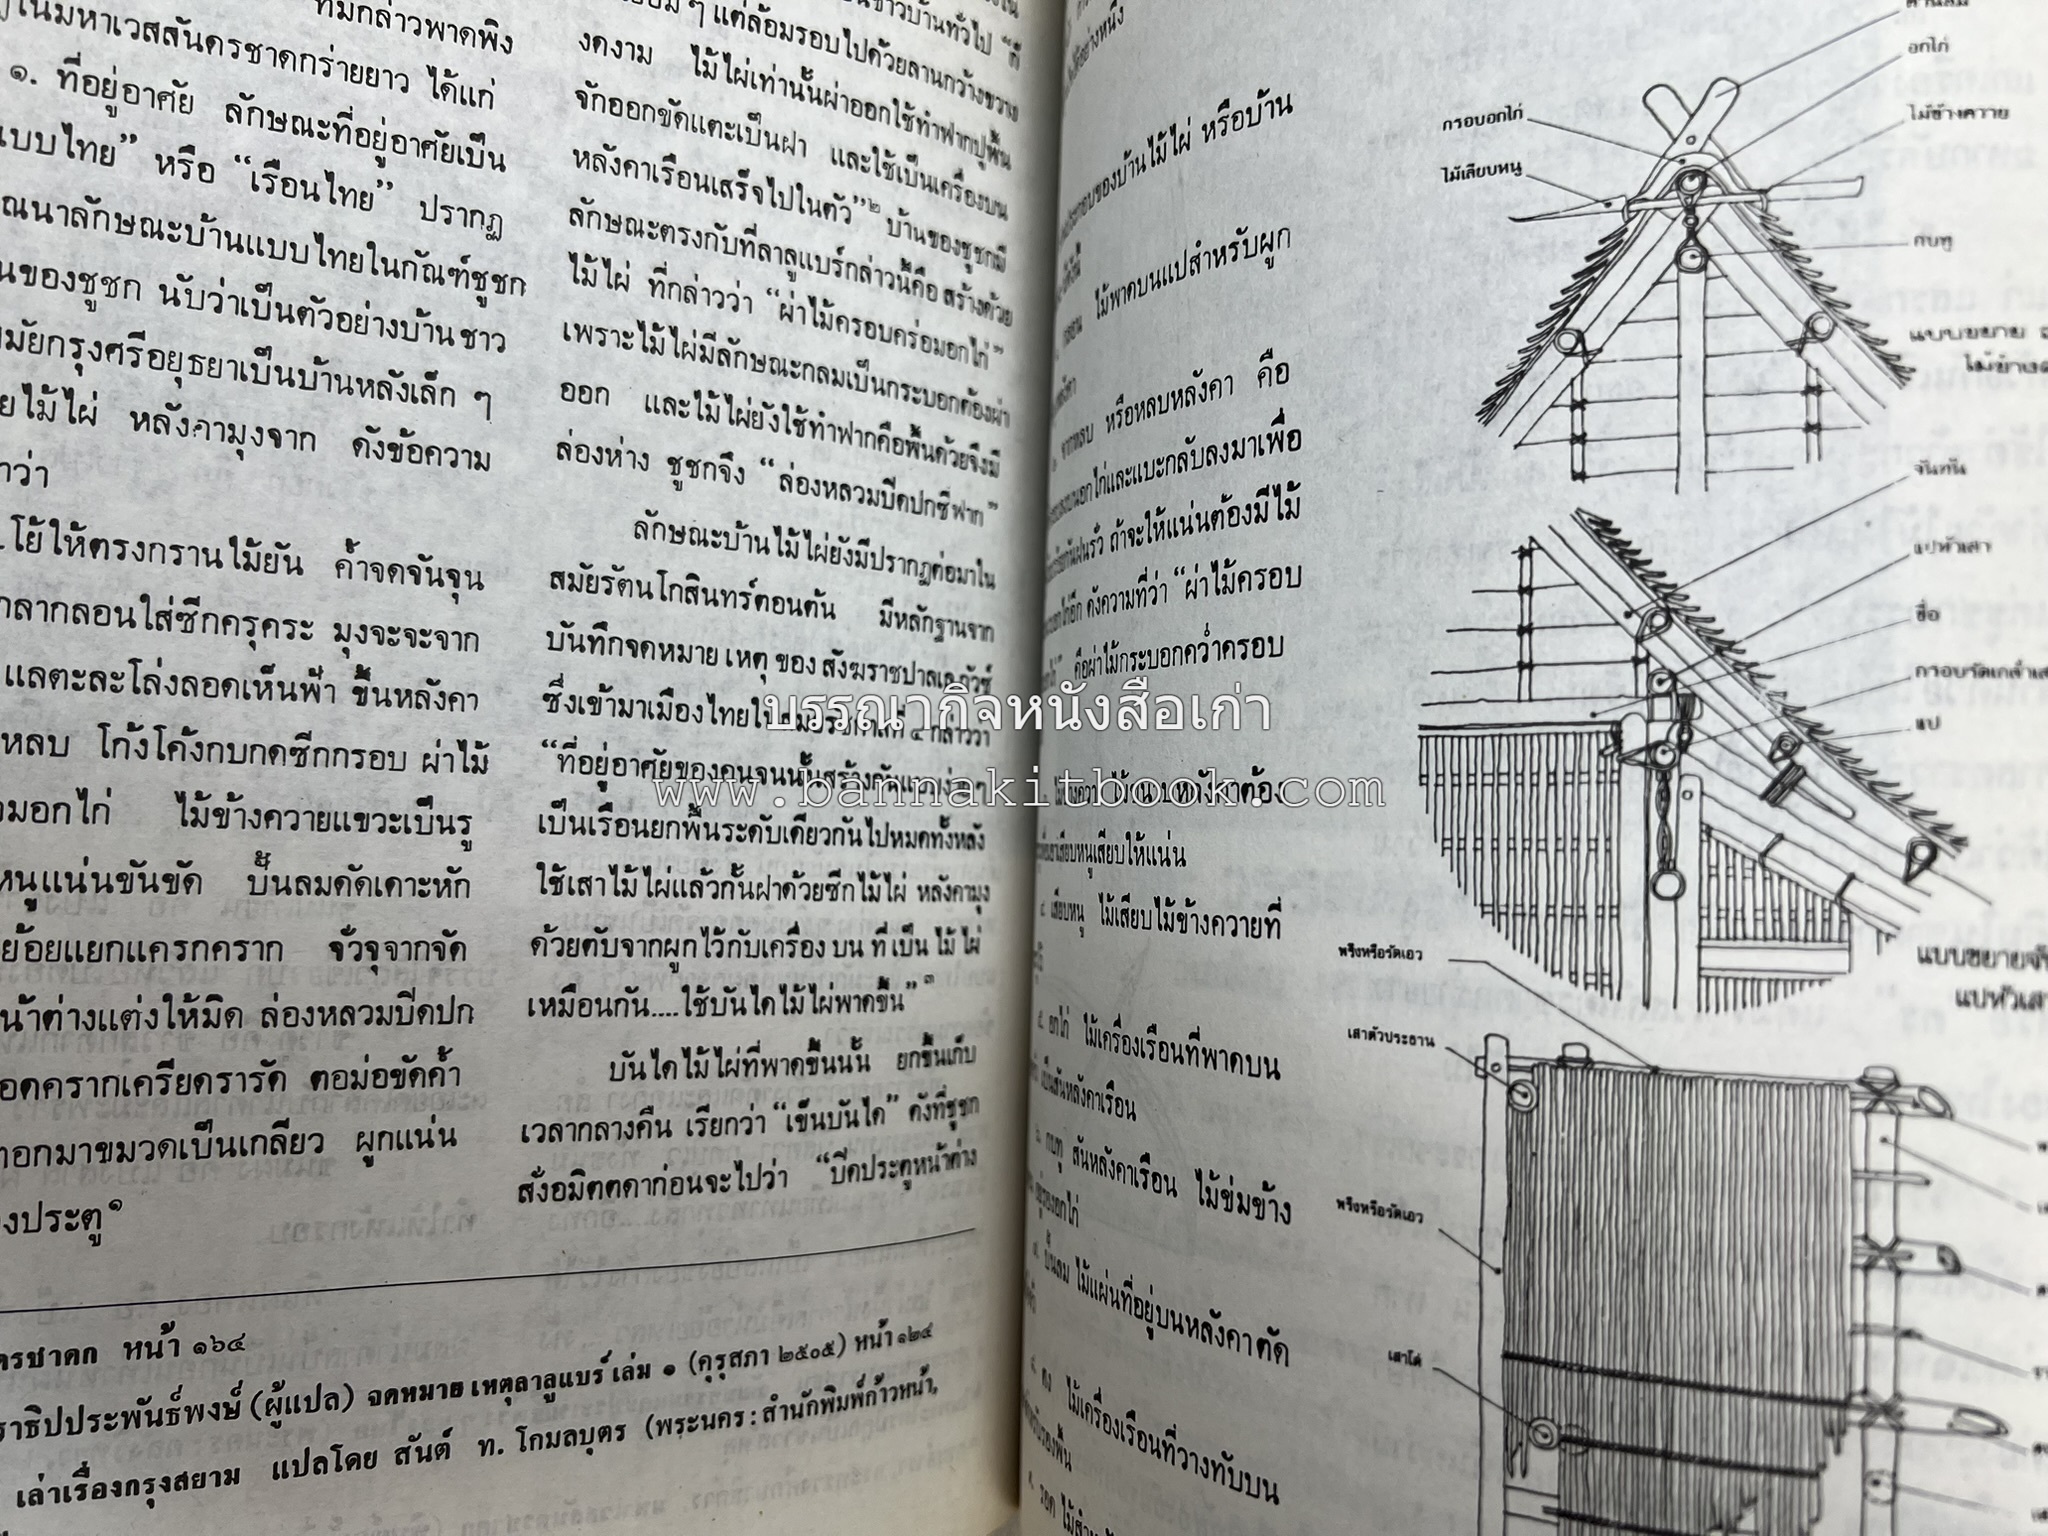 ที่มีกล่าวพาดพิง
ในมหาเวสสันดรชาดกร่ายยาว ได้แก่
๑. ที่อยู่อาศัย ลักษณะที่อยู่อาศัยเป็น
แบบไทย” หรือ “เรือนไทย” ปรากฏ
ณนาลักษณะบ้านแบบไทยในกัณฑ์ชูชก
นของชูชก นับว่าเป็นตัวอย่างบ้านชาว
มัยกรุงศรีอยุธยาเป็นบ้านหลังเล็ก ๆ
ยไม้ไผ่ หลังคามุงจาก ดังข้อความ
าว่า
โย้ให้ตรงกรานไม้ยัน ค้ำจดจันจุน
กลากลอนใส่ซีกครุคระ มุงจะจะจาก
แลตะละโล่งลอดเห็นฟ้า ขึ้นหลังคา
หลบ โก้งโค้งกบกดซีกกรอบ ผ่าไม้
มอกไก่ ไม้ข้างควายแขวะเป็นรู
หนูแน่นขันขัด ปั้นลมดัดเดาะหัก
ย้อยแยกแครกคราก จั่วจุจากจัด
น้าต่างแต่งให้มิด ล่องหลวมบีดปก
อดครากเครียดรารัด ตอม่อขัดค้ำ
าอกมาขมวดเป็นเกลียว ผูกแน่น
งประตู๑
ดรชาดก หน้า ๑๖๔
ราธิปประพันธ์พงษ์ (ผู้แปล) จดหมายเหตุลาลูแบร์ เล่ม ๑ (คุรุสภา ๒๕๐๕) หน้า ๑๒๔
เล่าเรื่องกรุงสยาม แปลโดย สันต์ ท. โกมลบุตร (พระนคร : สำนักพิมพ์ก้าวหน้า,
ๆ แต่ล้อมรอบไปด้วยลานกว้างขวาง
งดงาม ไม้ไผ่เท่านั้นผ่าออกใช้ทำฟากปูพื้น
จักออกขัดแตะเป็นฝา และใช้เป็นเครื่องบน
หลังคาเรือนเสร็จไปในตัว”๒ บ้านของชูชกมี
ลักษณะตรงกับที่ลาลูแบร์กล่าวนี้คือ สร้างด้วย
ไม้ไผ่ ที่กล่าวว่า “ผ่าไม้ครอบคร่อมอกไก่”
เพราะไม้ไผ่มีลักษณะกลมเป็นกระบอกต้องผ่า
ออก และไม้ไผ่ยังใช้ทำฟากคือพื้นด้วยจึงมี
ล่องห่าง ชูชกจึง “ล่องหลวมบีดปกซี่ฟาก”
ลักษณะบ้านไม้ไผ่ยังมีปรากฏต่อมาใน
สมัยรัตนโกสินทร์ตอนต้น มีหลักฐานจาก
บันทึกจดหมายเหตุ ของ สังฆราชปาลเลกัวซ์
ซึ่งเข้ามาเมืองไทยใน กล่าวว่า
“ที่อยู่อาศัยของคนจนนั้นสร้างกันแบบง่าย ๆ
เป็นเรือนยกพื้นระดับเดียวกันไปหมดทั้งหลัง
ใช้เสาไม้ไผ่แล้วกั้นฝาด้วยซีกไม้ไผ่ หลังคามุง
ด้วยตับจากผูกไว้กับเครื่องบน ที่เป็น ไม้ ไผ่
เหมือนกัน....ใช้บันไดไม้ไผ่พาดขึ้น”๓
บันไดไม้ไผ่ที่พาดขึ้นนั้น ยกขึ้นเก็บ
เวลากลางคืน เรียกว่า “เข็นบันได” ดังที่ชูชก
สั่งอมิตตดาก่อนจะไปว่า “บีดประตูหน้าต่าง
บรรณากิจหนังสือเก่า
www.bannakitbook.com
ประกอบของบ้านไม้ไผ่ หรือบ้าน
ไม้พาดบนแปสำหรับผูก
หรือหลบหลังคา คือ
อกไก่และแบะกลับลงมาเพื่อ
กันฝนรั่ว ถ้าจะให้แน่นต้องมีไม้
อีก ดังความที่ว่า “ผ่าไม้ครอบ
คือผ่าไม้กระบอกคว่ำครอบ
ไม้หนีบหลังคาต้อง
เสียบหนูเสียบให้แน่น
๔. เสียบหนู ไม้เสียบไม้ข้างควายที่
๕. อกไก่ ไม้เครื่องเรือนที่พาดบน
เป็นสันหลังคาเรือน
๖. กบทู สันหลังคาเรือน ไม้ข่มข้าง
ของอกไก่
ปั้นลม ไม้แผ่นที่อยู่บนหลังคาตัด
ไม้เครื่องเรือนที่วางทับบน
รองพื้น
รอด
อกไก่
กรอบอกไก่
ไม้ข้างควาย
ไม้เสียบหนู
กบทู
แบบขยาย
จันทัน
แปหัวเสา
ขื่อ
แป
แบบขยาย
แปหัวเสา
พรึงหรือรัดเอว
เสาตัวประธาน
พรึงหรือรัดเอว
เสาโด่